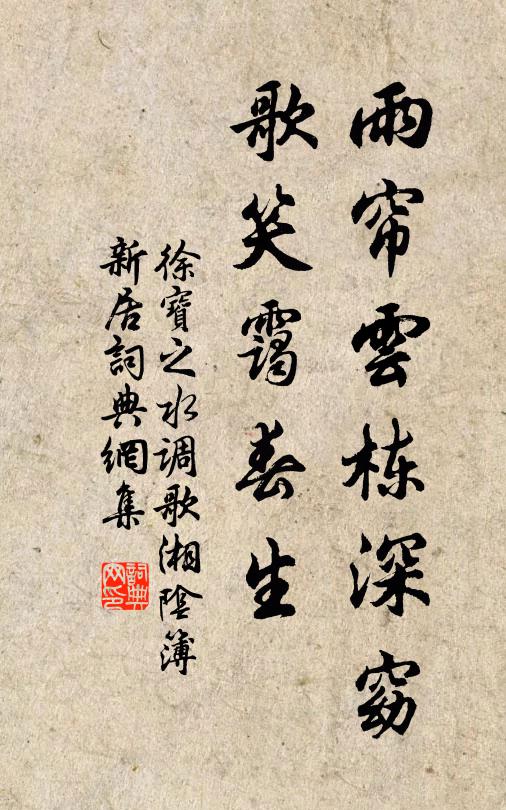 雨帘雲栋深窈
歌笑靄春生
徐寶之水调歌湘陰簿
新居詞典網集
詞典网印